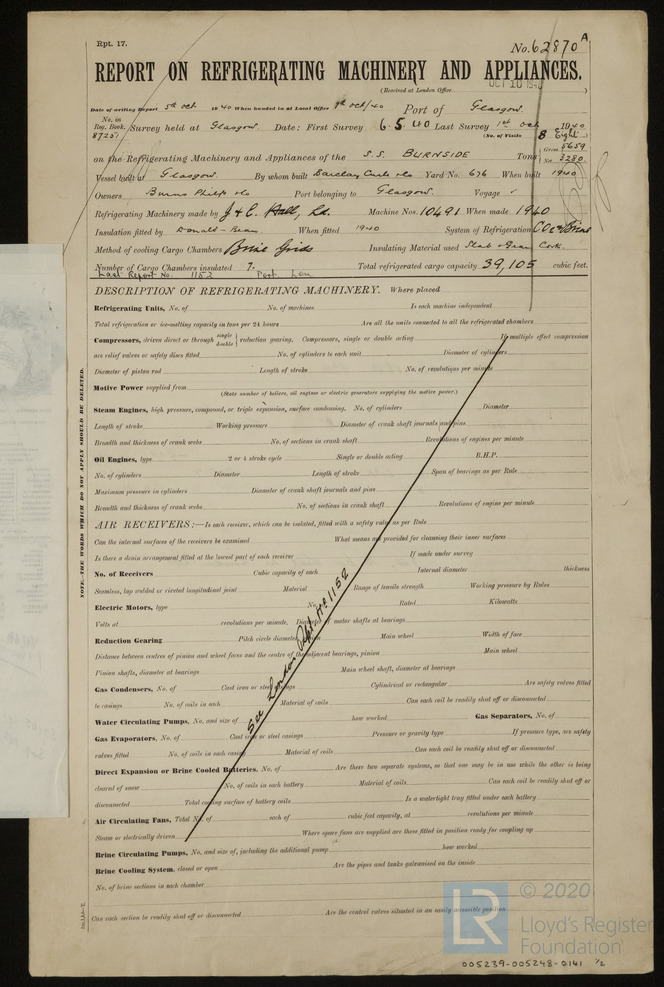 Rpt. 17.
No. 62870 A
REPORT ON REFRIGERATING MACHINERY AND APPLIANCES.
(Received at London Office OCT 10 1940 )
Date of writing Report 5th Oct. 1940 When handed in at Local Office 9th Oct/40 Port of Glasgow.
No. in Reg. Book. Survey held at Glasgow. Date: First Survey 6.5.40 Last Survey 1st Oct 1940
87251 (No. of Visits 8 Eight)
on the Refrigerating Machinery and Appliances of the S.S. BURNSIDE Tons Gross 5659 Net 3280
Vessel built at Glasgow By whom built Barclay Curle & Co Yard No. 676 When built 1940
Owners Burns Philp & Co Port belonging to Glasgow. Voyage
Refrigerating Machinery made by J & E. Hall, Ld. Machine Nos. 10491 When made 1940
Insulation fitted by Donald & Bean When fitted 1940 System of Refrigeration CO2 & Brine
Method of cooling Cargo Chambers Brine Grids Insulating Material used Slab & Gran Cork.
Number of Cargo Chambers insulated 7. Total refrigerated cargo capacity 39,105 cubic feet.
Last Report No. 1152 Port. Lon
DESCRIPTION OF REFRIGERATING MACHINERY. Where placed
Refrigerating Units, No. of No. of machines Is each machine independent
Total refrigeration or ice-melting capacity in tons per 24 hours Are all the units connected to all the refrigerated chambers
Compressors, driven direct or through single double reduction gearing. Compressors, single or double acting If multiple effect compression
are relief valves or safety discs fitted No. of cylinders to each unit Diameter of cylinders
Diameter of piston rod Length of stroke No. of revolutions per minute
Motive Power supplied from
(State number of boilers, oil engines or electric generators supplying the motive power.)
Steam Engines, high pressure, compound, or triple expansion, surface condensing. No. of cylinders Diameter
Length of stroke Working pressure Diameter of crank shaft journals and pins
Breadth and thickness of crank webs No. of sections in crank shaft Revolutions of engines per minute
Oil Engines, type 2 or 4 stroke cycle Single or double acting B.H.P.
No. of cylinders Diameter Length of stroke Span of bearings as per Rule
Maximum pressure in cylinders Diameter of crank shaft journals and pins
Breadth and thickness of crank webs No. of sections in crank shaft Revolutions of engine per minute
AIR RECEIVERS:—Is each receiver, which can be isolated, fitted with a safety valve as per Rule
Can the internal surfaces of the receivers be examined What means are provided for cleaning their inner surfaces
Is there a drain arrangement fitted at the lowest part of each receiver If made under survey
No. of Receivers Cubic capacity of each Internal diameter thickness
Seamless, lap welded or riveted longitudinal joint Material Range of tensile strength Working pressure by Rules
Electric Motors, type Rated Kilowatts
Volts at revolutions per minute, Diameter of motor shafts at bearings
Reduction Gearing Pitch circle diameter, Main wheel Width of face
Distance between centres of pinion and wheel faces and the centre of the adjacent bearings, pinion Main wheel
Pinion shafts, diameter at bearings Main wheel shaft, diameter at bearings
Gas Condensers, No. of Cast iron or steel casings Cylindrical or rectangular Are safety valves fitted
to casings No. of coils in each Material of coils Can each coil be readily shut off or disconnected
Water Circulating Pumps, No. and size of how worked Gas Separators, No. of
Gas Evaporators, No. of Cast iron or steel casings Pressure or gravity type If pressure type, are safety
valves fitted No. of coils in each casing Material of coils Can each coil be readily shut off or disconnected
Direct Expansion or Brine Cooled Batteries, No. of Are there two separate systems, so that one may be in use while the other is being
cleared of snow No. of coils in each battery Material of coils Can each coil be readily shut off or
disconnected Total cooling surface of battery coils Is a watertight tray fitted under each battery
Air Circulating Fans, Total No. of each of cubic feet capacity, at revolutions per minute
Steam or electrically driven Where spare fans are supplied are these fitted in position ready for coupling up
Brine Circulating Pumps, No. and size of, including the additional pump how worked
Brine Cooling System, closed or open Are the pipes and tanks galvanised on the inside
No. of brine sections in each chamber
Can each section be readily shut off or disconnected Are the control valves situated in an easily accessible position
See London Rpt. No 1152
NOTE.—THE WORDS WHICH DO NOT APPLY SHOULD BE DELETED.
© 2020
LR
Lloyd's Register
Foundation
005239-005248-0141 1/2